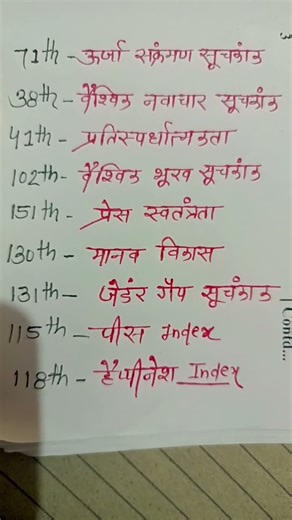 71th - ऊर्जा संक्रमण सूचकांक
38th - वैश्विक नवाचार सूचकांक
41th - प्रतिस्पर्धात्मकता
102th - वैश्विक भूख सूचकांक
151th - प्रेस स्वतंत्रता
130th - मानव विकास
131th - जेडंर गैप सूचकांक
115th - पीस Index
118th - हैप्पीनेश Index
Contd...